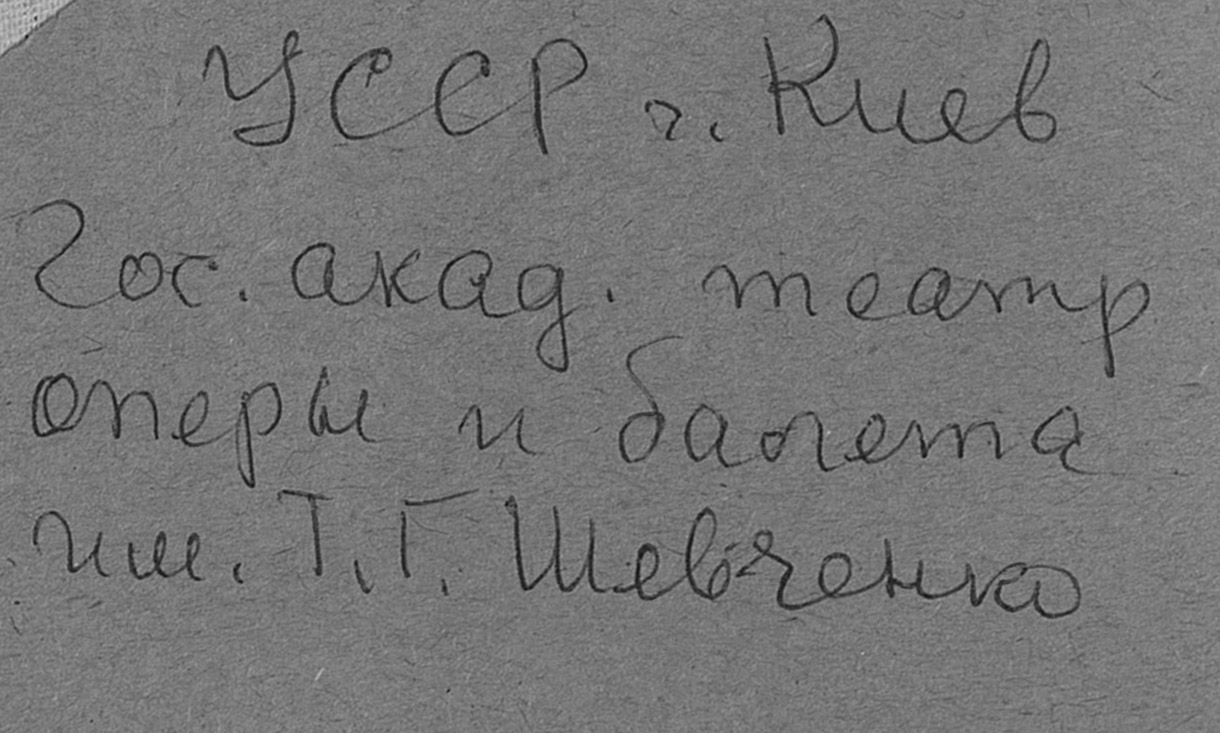 УССР г. Киев
Гос. акад. театр
оперы и балета
им. Т.Г. Шевченко